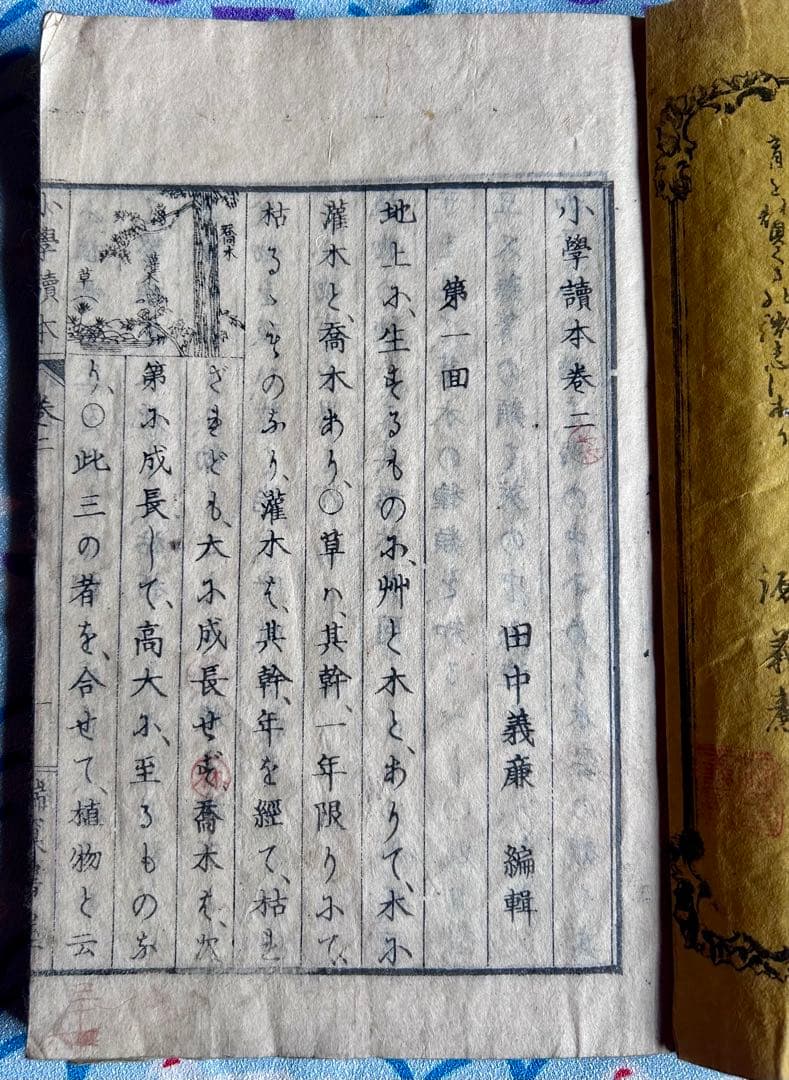 小學讀本卷二
田中義廉 編輯
第一面
地上に、生ずるものに、艸と木と、ありて、木に
灌木と、喬木あり、○草ハ、其幹、一年限りにて、
枯るゝものなり、灌木は、其幹、年を經て、枯れ
ざれども、大に成長せず、喬木は、次
第に成長して、高大に、至るものな
り、○此三の者を、合せて、植物と云
喬木
灌木
草
小學讀本 卷二
一